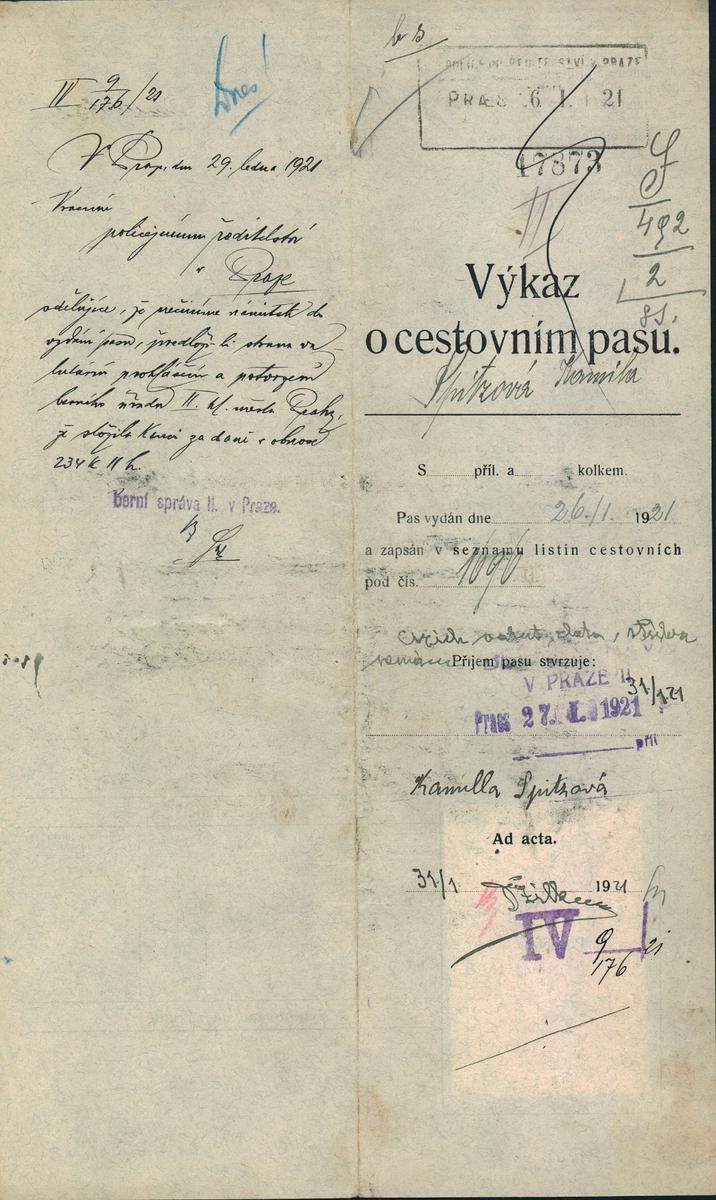 IV 9/176/21
Dnes!
V Praze, dne 29. ledna 1921
Vráceno
policejnímu ředitelství
v Praze
sdělujíce, že nečiníme námitek do
vydání pasu, předloží-li strana va-
lutární prohlášení a potvrzení
berního úřadu II. hl. města Prahy,
že složila kauci za daně v obnose
234 K 11 h.
berní správa II. v Praze.
PRAHA 26. I. 1921
17873
II
J
492
2
Výkaz
o cestovním pasu.
Spitzová Kamila
S příl. a kolkem.
Pas vydán dne 26./1. 1921
a zapsán v seznamu listin cestovních
pod čís. 1696
Příjem pasu stvrzuje:
V PRAZE II.
31/1 21
Praes 27. I. 1921
příl
Kamilla Spitzová
Ad acta.
31/1 1921
IV 9/176 21